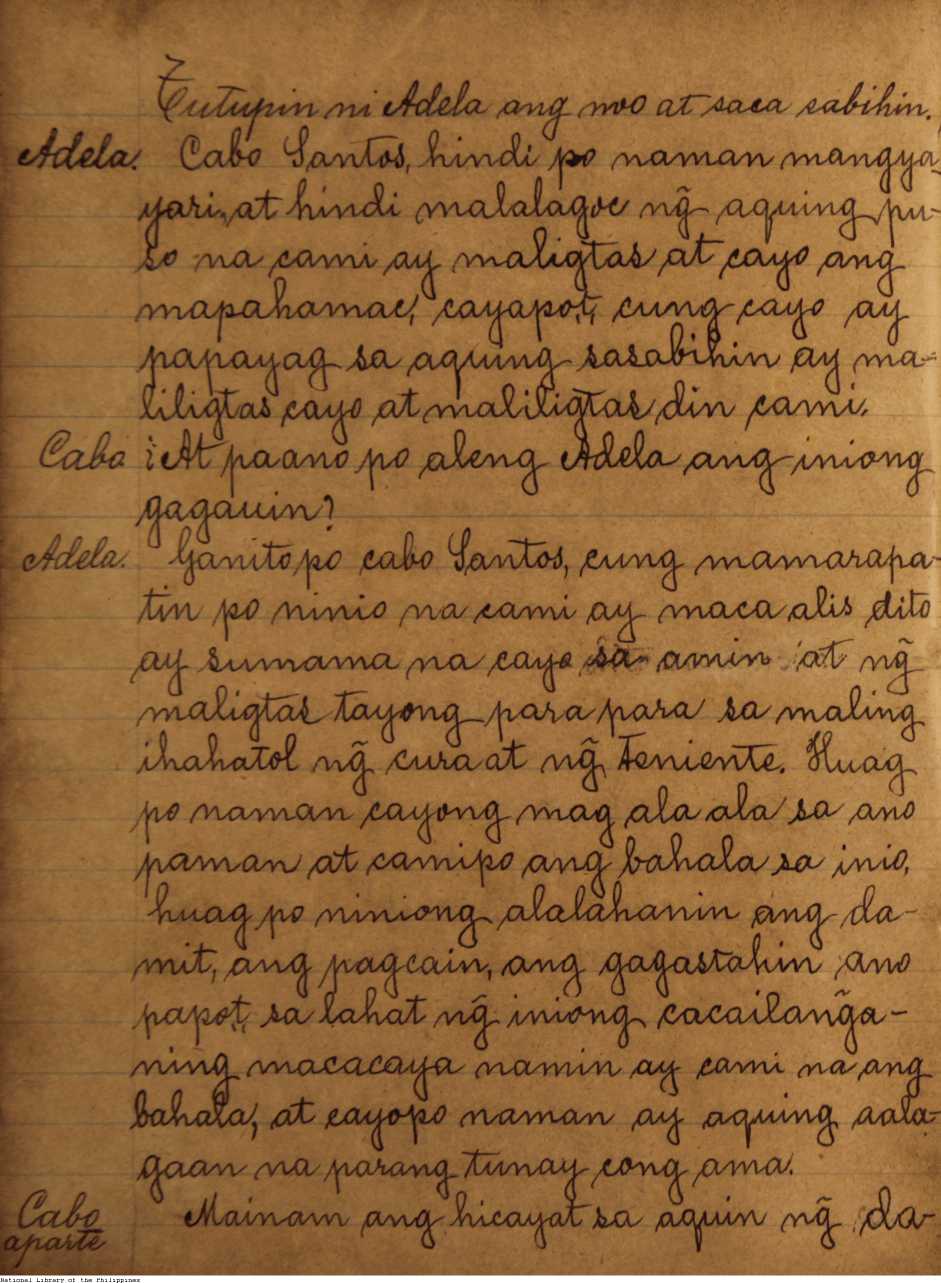 Tutupin ni Adela ang noo at saca sabihin.
Adela. Cabo Santos, hindi po naman mangya-
yari, at hindi malalagoc ng̃ aquing pu-
so na cami ay maligtas at cayo ang
mapahamac, cayapo,t, cung cayo ay
papayag sa aquing sasabihin ay ma-
liligtas cayo at maliligtas din cami.
Cabo ¿At paano po aleng Adela ang iniong
gagauin?
Adela. Ganito po cabo Santos, cung mamarapa-
tin po ninio na cami ay maca alis dito
ay sumama na cayo sa amin at ng̃
maligtas tayong para para sa maling
ihahatol ng̃ cura at ng̃ Teniente. Huag
po naman cayong mag ala ala sa ano
paman at camipo ang bahala sa inio,
huag po niniong alalahanin ang da-
mit, ang pagcain, ang gagastahin ano
papo,t, sa lahat ng̃ iniong cacailang̃a-
ning macacaya namin ay cami na ang
bahala, at cayopo naman ay aquing aala-
gaan na parang tunay cong ama.
Cabo Mainam ang hicayat sa aquin ng̃ da-
aparte
National Library of the Philippines